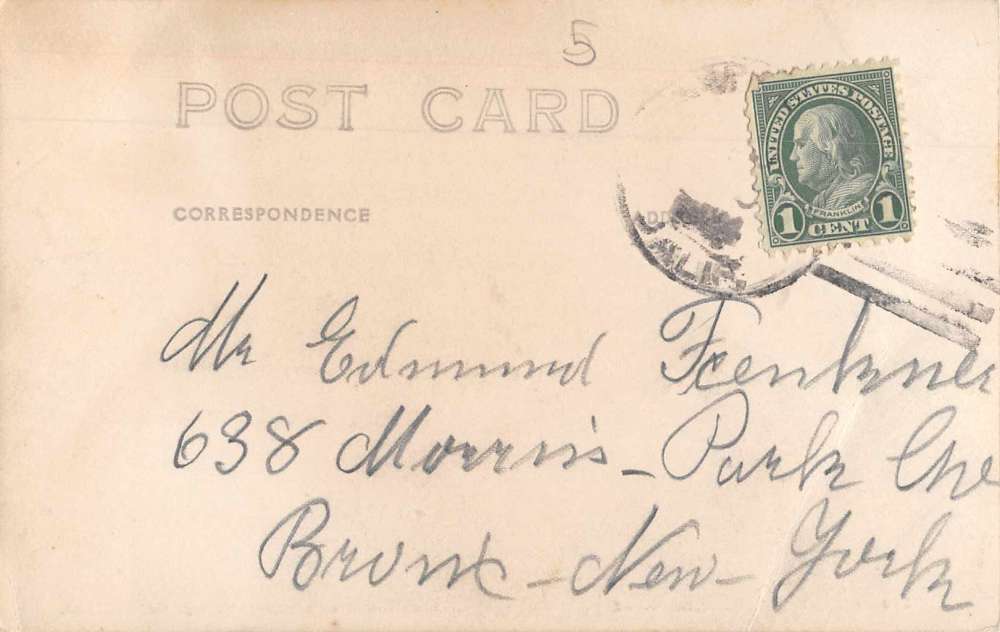 5
POST CARD
UNITED STATES POSTAGE
FRANKLIN
1 CENT 1
CORRESPONDENCE
ADDRESS
CALIF.
Mr Edmund
638 Morris-Park Ave
Bronx-New-York